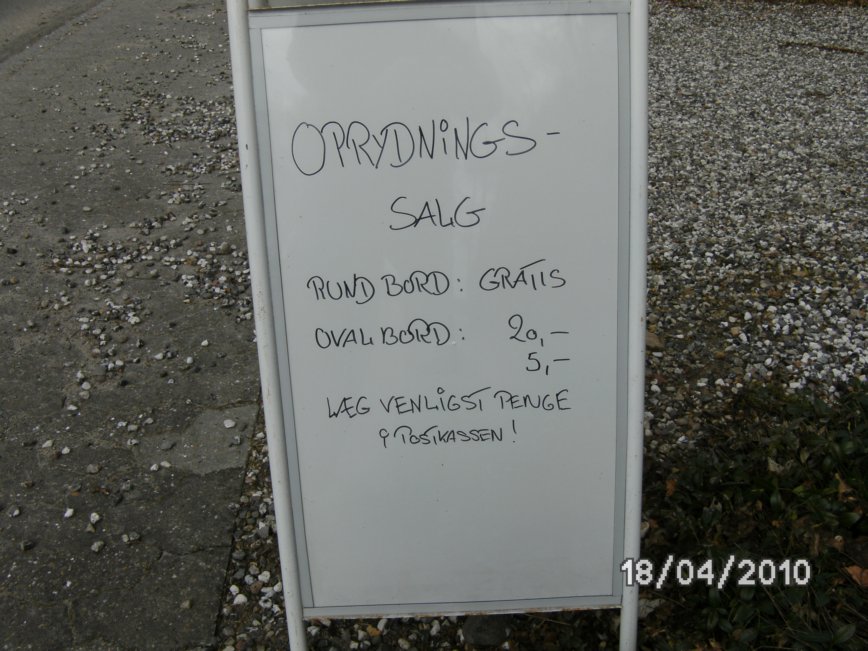 OPRYDNINGS-
SALG
RUND BORD: GRATIS
OVAL BORD: 20,-
5,-
LÆG VENLIGST PENGE
i POSTKASSEN!
18/04/2010